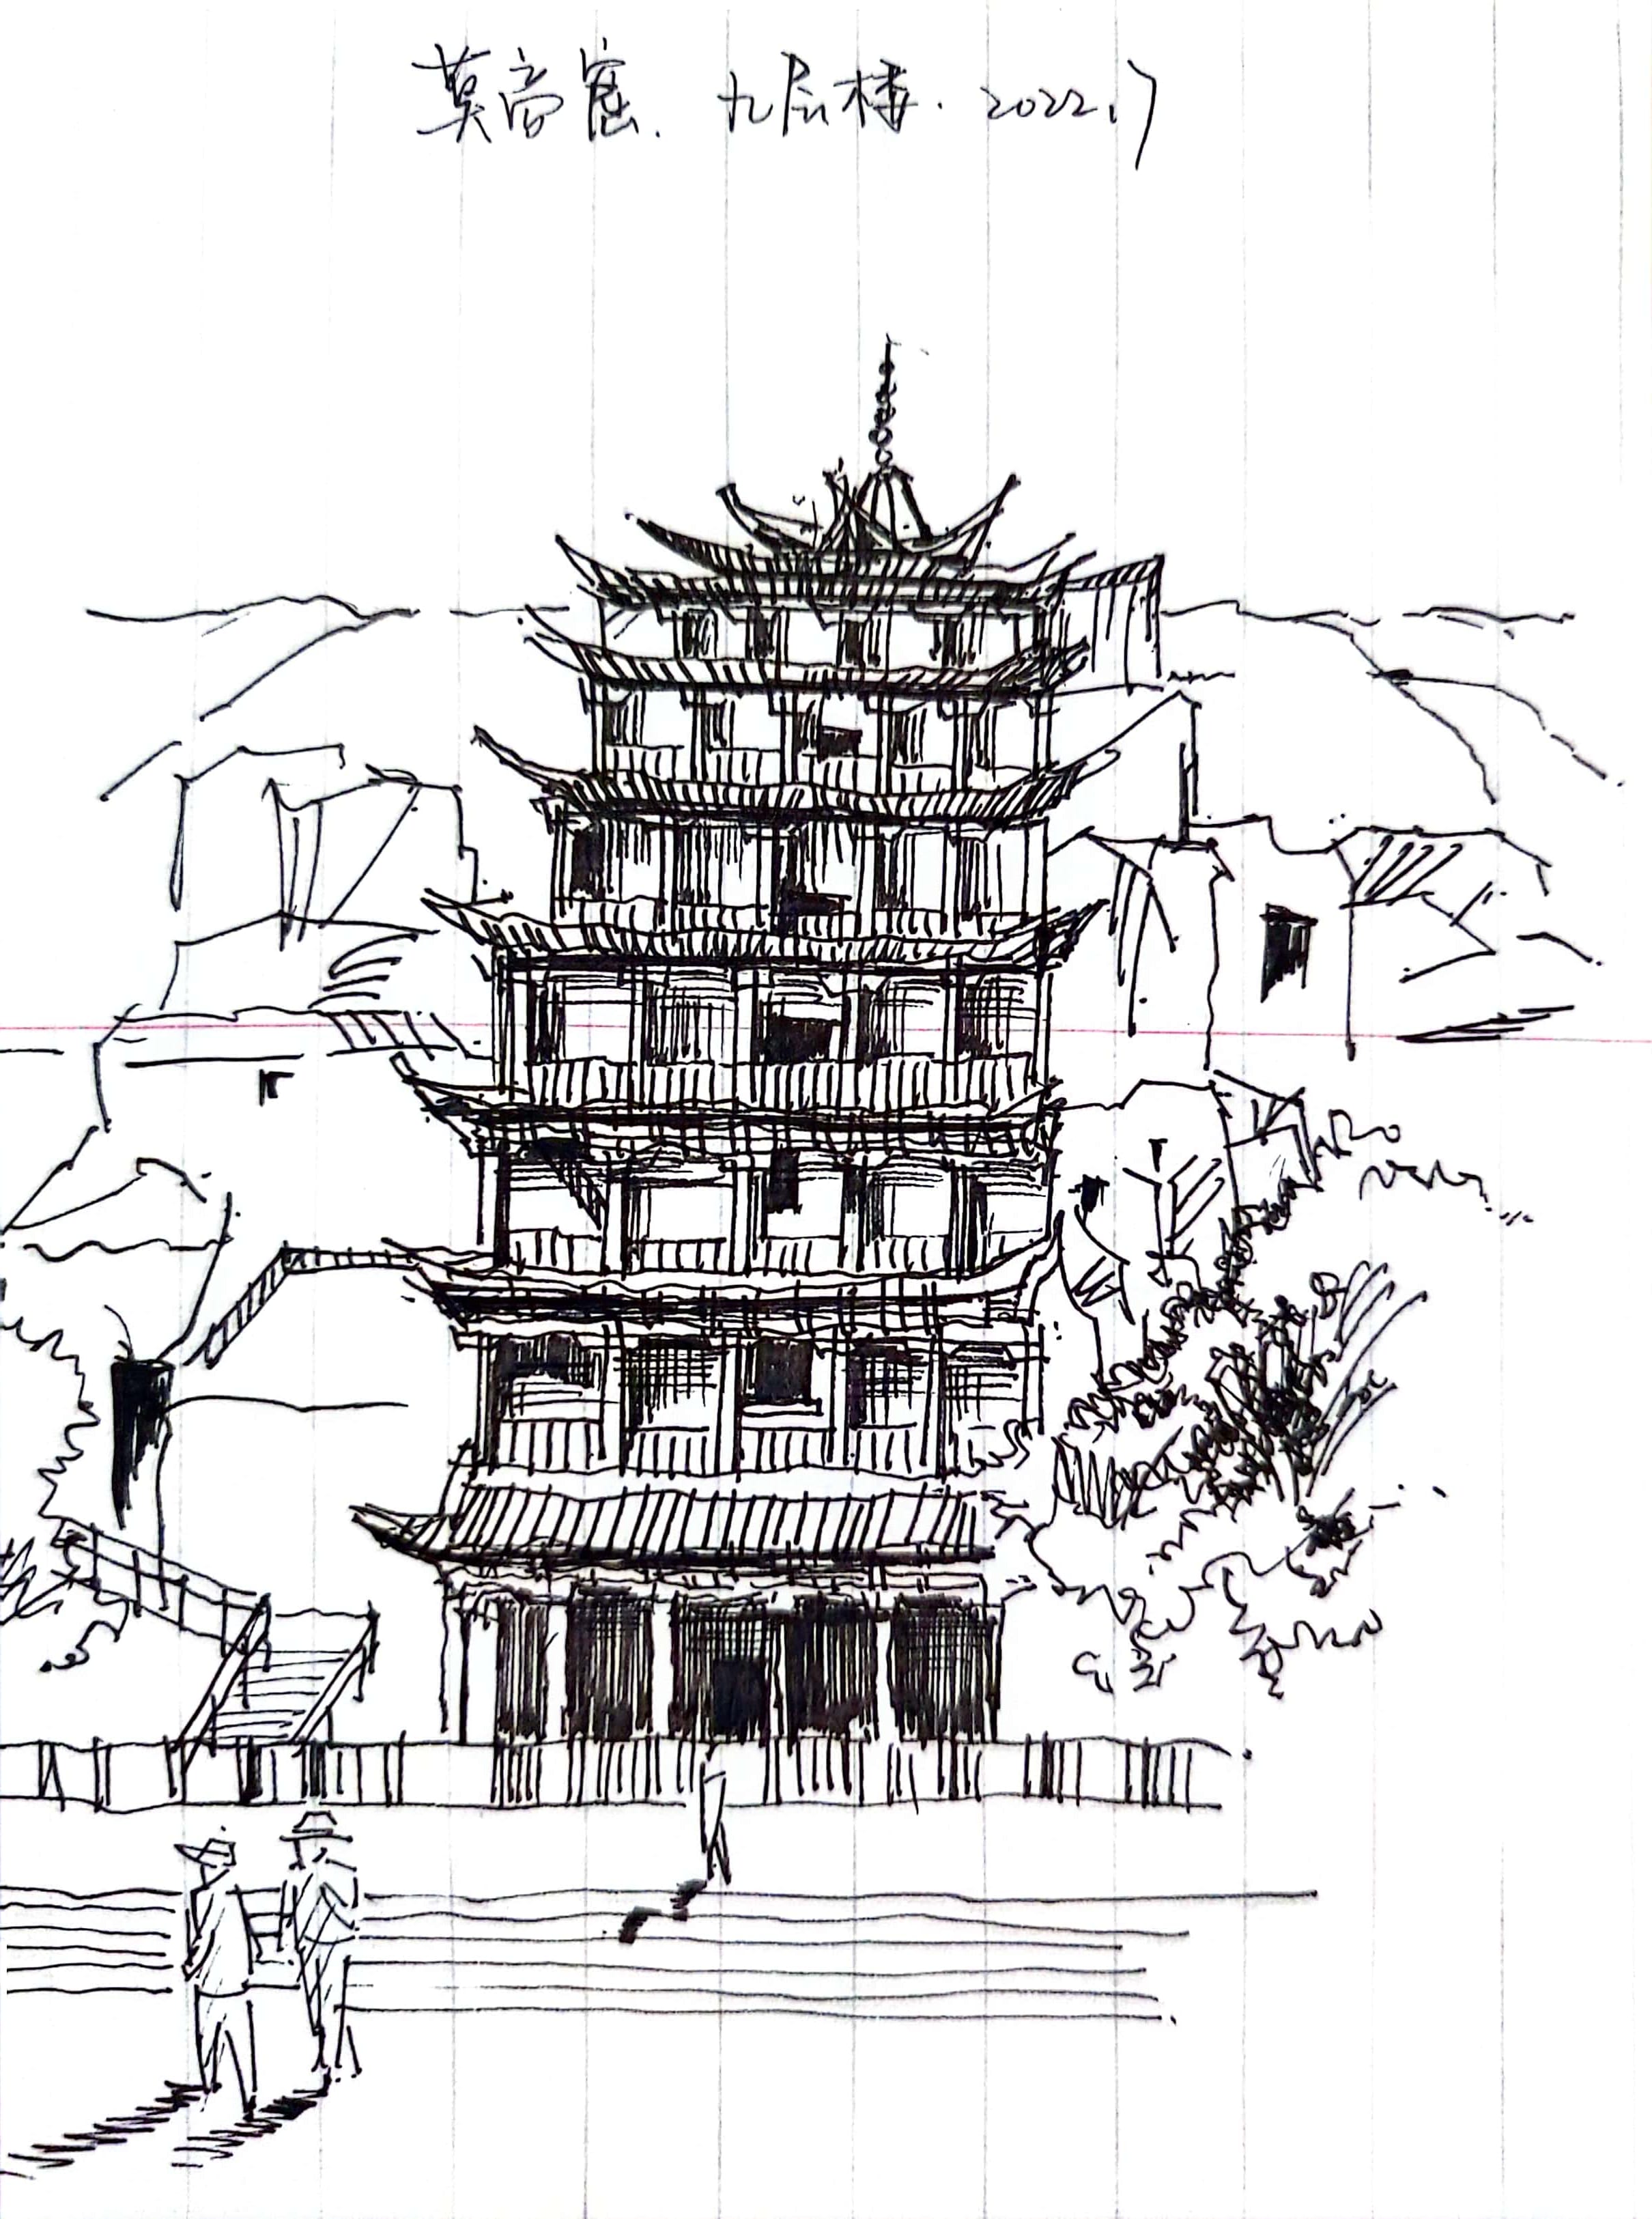 莫高窟. 九层楼. 2022.7